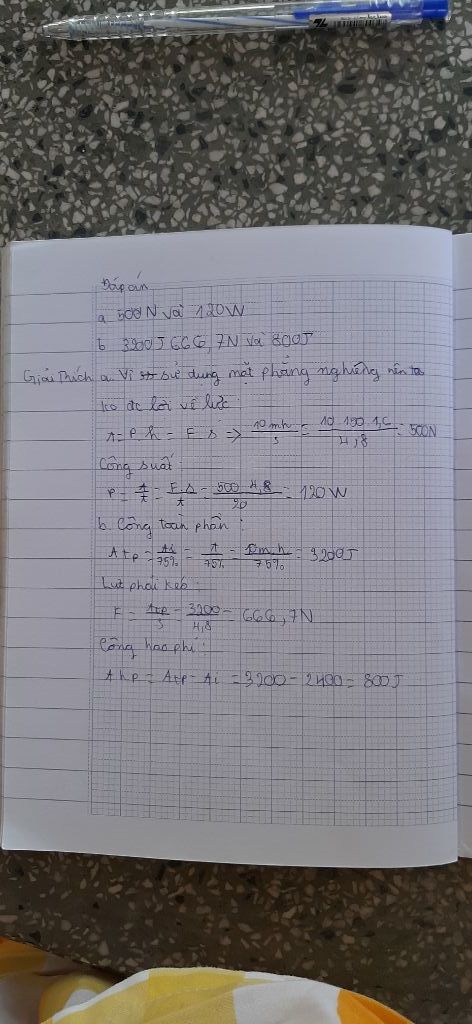 Đáp án
a. 500N và 120W
b 3200J 666,7N và 800J
Giải Thích a. Vì sử dụng mặt phẳng nghiêng nên ta
ko đc lời về lực:
A = P.h = F.s => 10mh/s = 10.150.1,6/4,8 = 500N
Công suất:
P = A/t = F.s/t = 500.4,8/20 = 120W
b. Công toàn phần:
Atp = Ai/75% = A/75% = 10m.h/75% = 3200J
Lực phải kéo:
F = Atp/s = 3200/4,8 = 666,7N
Công hao phí:
Ahp = Atp - Ai = 3200 - 2400 = 800J